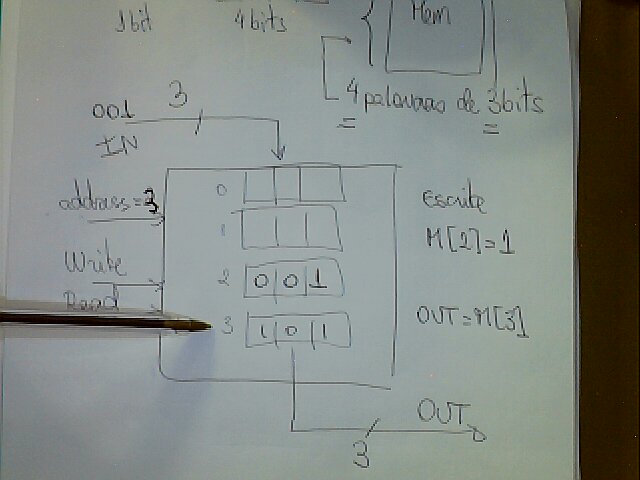 1bit 4bits
Mem
4 palavras de 3bits
3
001
IN
address=3
Write
Read
0
1
2 0 0 1
3 1 0 1
Escrite
M[2]=1
OUT=M[3]
OUT
3